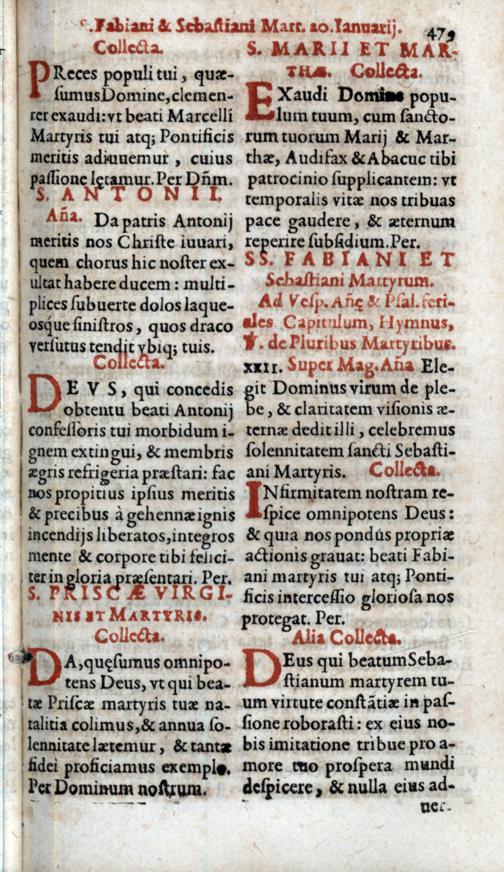 S. Fabiani & Sebastiani Mart. 20. Ianuarij.
479
Collecta.
PReces populi tui, quæ-
sumus Domine, clemen-
ter exaudi: vt beati Marcelli
Martyris tui atq; Pontificis
meritis adiuuemur, cuius
passione lętamur. Per Dñm.
S. ANTONII.
Aña. Da patris Antonij
meritis nos Christe iuuari,
quem chorus hic noster ex-
ultat habere ducem: multi-
plices subuerte dolos laque-
osque sinistros, quos draco
versutus tendit vbiq; tuis.
Collecta.
DEVS, qui concedis
obtentu beati Antonij
confessoris tui morbidum i-
gnem extingui, & membris
ægris refrigeria præstari: fac
nos propitius ipsius meritis
& precibus à gehennæ ignis
incendijs liberatos, integros
mente & corpore tibi felici-
ter in gloria præsentari. Per.
S. PRISCÆ VIRGI-
NIS ET MARTYRIS.
Collecta.
DA, quęsumus omnipo-
tens Deus, vt qui bea-
tæ Priscæ martyris tuæ na-
talitia colimus, & annua so-
lennitate lætemur, & tantæ
fidei proficiamus exemplo.
Per Dominum nostrum.
S. MARII ET MAR-
THÆ. Collecta.
EXaudi Domine popu-
lum tuum, cum sancto-
rum tuorum Marij & Mar-
thæ, Audifax & Abacuc tibi
patrocinio supplicantem: vt
temporalis vitæ nos tribuas
pace gaudere, & æternum
reperire subsidium. Per.
SS. FABIANI ET
Sebastiani Martyrum.
Ad Vesp. Añę & Psal. feri-
ales Capitulum, Hymnus,
℣. de Pluribus Martyribus.
XXII. Super Mag. Aña Ele-
git Dominus virum de ple-
be, & claritatem visionis æ-
ternæ dedit illi, celebremus
solennitatem sancti Sebasti-
ani Martyris. Collecta.
INfirmitatem nostram re-
spice omnipotens Deus:
& quia nos pondus propriæ
actionis grauat: beati Fabi-
ani martyris tui atq; Ponti-
ficis intercessio gloriosa nos
protegat. Per.
Alia Collecta.
DEus qui beatum Seba-
stianum martyrem tu-
um virtute constãtiæ in pas-
sione roborasti: ex eius no-
bis imitatione tribue pro a-
more tuo prospera mundi
despicere, & nulla eius ad-
uer-